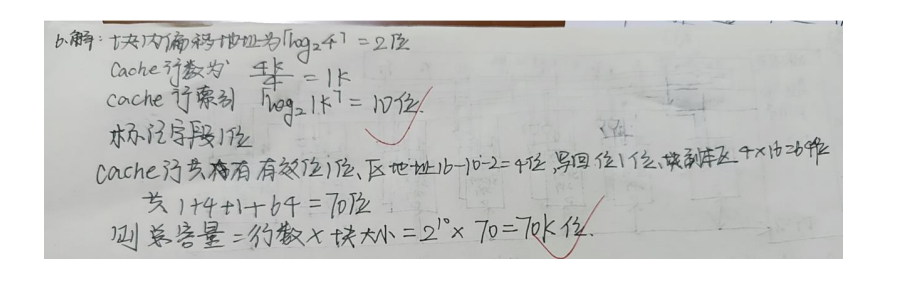 6.解：块内偏移地址为⌈log₂4⌉=2位
Cache行数为 4k/4 = 1k
cache 行索引 ⌈log₂1k⌉ = 10位.
标记字段1位
Cache行共有 有效位1位、区地址16-10-2=4位,写回位1位、块副本区 4×16=64位
共 1+4+1+64=70位
则总容量=行数×块大小=2¹⁰×70=70k位.